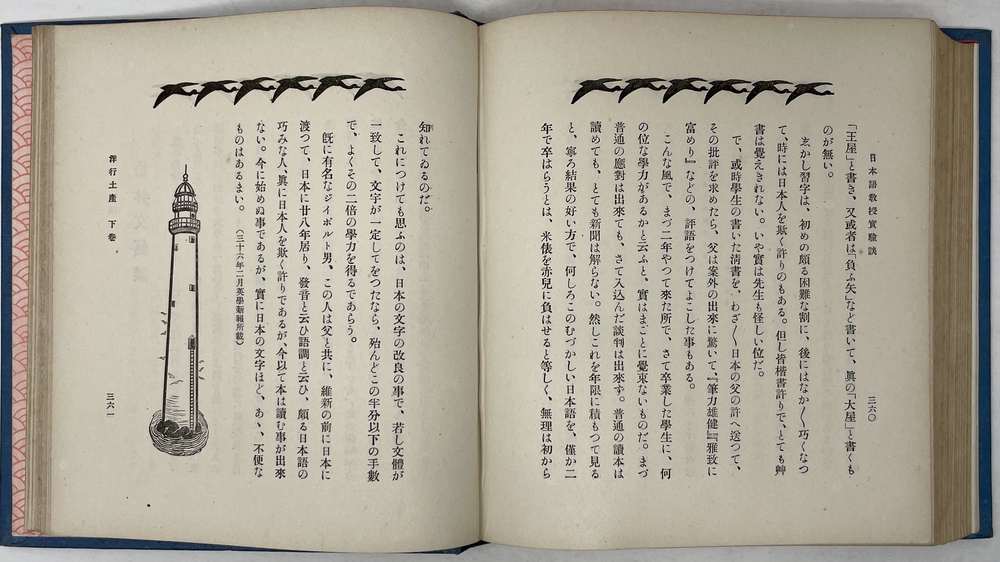 日本語教授實驗談
三六〇
「王屋」と書き、又或者は「負ふ矢」など書いて、眞の「大屋」と書くも
のが無い。
志かし習字は、初めの頗る困難な割に、後にはなか〱巧くなつ
て、時には日本人を欺く許りのもある。但し皆楷書許りで、とても艸
書は覺えきれない。いや實は先生も怪しい位だ。
で、或時學生の書いた淸書を、わざ〱日本の父の許へ送つて、
その批評を求めたら、父は案外の出來に驚いて、『筆力雄健』『雅致に
富めり』などの、評語をつけてよこした事もある。
こんな風で、まづ二年やつて來た所で、さて卒業した學生に、何
の位な學力があるかと云ふと、實はまことに覺束ないものだ。まづ
普通の應對は出來ても、さて入込んだ談判は出來ず。普通の讀本は
讀めても、とても新聞は解らない。然しこれを年限に積もつて見る
と、寧ろ結果の好い方で、何しろこのむづかしい日本語を、僅か二
年で卒はらうとは、米俵を赤兒に負はせると等しく、無理は初から
知れてゐるのだ。
これにつけても思ふのは、日本の文字の改良の事で、若し文體が
一致して、文字が一定してをつたなら、殆んどこの半分以下の手數
で、よくその二倍の學力を得るであらう。
旣に有名なジイボルト男、この人は父と共に、維新の前に日本に
渡つて、日本に廿八年居り、發音と云ひ語調と云ひ、頗る日本語の
巧みな人、眞に日本人を欺く許りであるが、今以て本は讀む事が出來
ない。今に始めぬ事であるが、實に日本の文字ほど、あゝ、不便な
ものはあるまい。
(三十六年二月英學新報所載)
洋行土產 下卷。
三六一